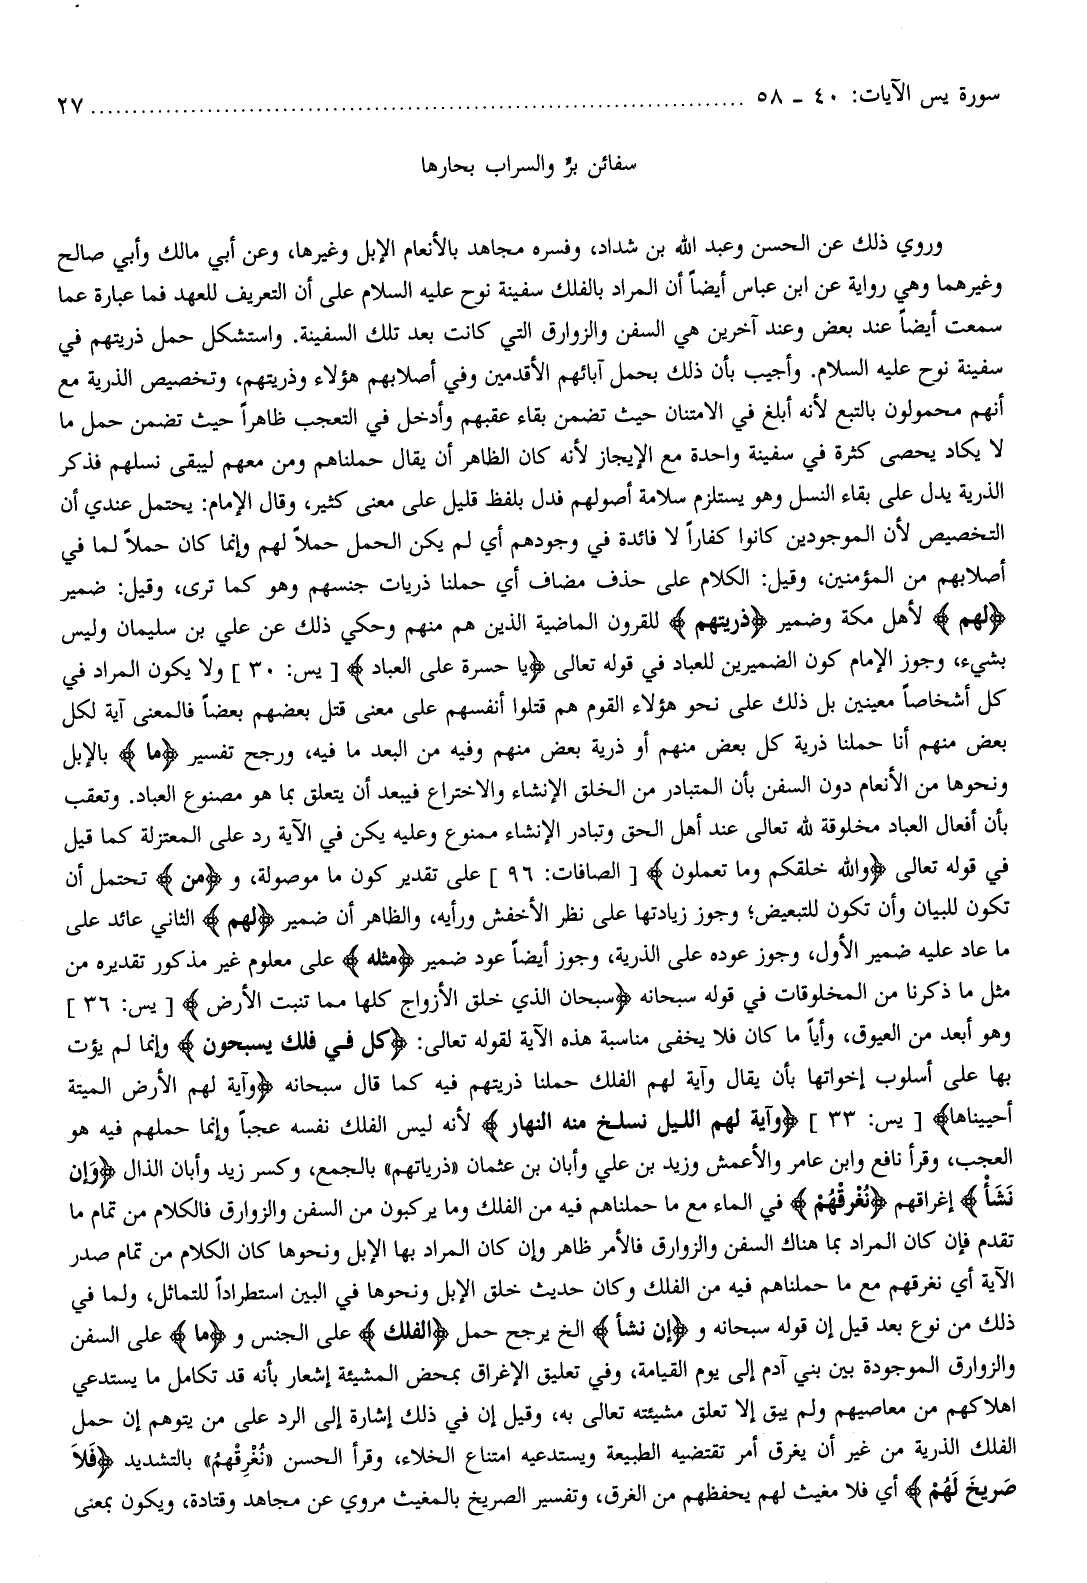 سورة يس الآيات: ٤٠ ـ ٥٨ ........................................................................ ٢٧
سفائن برٍّ والسراب بحارها
وروي ذلك عن الحسن وعبد الله بن شداد، وفسره مجاهد بالأنعام الإبل وغيرها، وعن أبي مالك وأبي صالح
وغيرهما وهي رواية عن ابن عباس أيضاً أن المراد بالفلك سفينة نوح عليه السلام على أن التعريف للعهد فما عبارة عما
سمعت أيضاً عند بعض وعند آخرين هي السفن والزوارق التي كانت بعد تلك السفينة. واستشكل حمل ذريتهم في
سفينة نوح عليه السلام. وأجيب بأن ذلك بحمل آبائهم الأقدمين وفي أصلابهم هؤلاء وذريتهم، وتخصيص الذرية مع
أنهم محمولون بالتبع لأنه أبلغ في الامتنان حيث تضمن بقاء عقبهم وأدخل في التعجب ظاهراً حيث تضمن حمل ما
لا يكاد يحصى كثرة في سفينة واحدة مع الإيجاز لأنه كان الظاهر أن يقال حملناهم ومن معهم ليبقى نسلهم فذكر
الذرية يدل على بقاء النسل وهو يستلزم سلامة أصولهم فدل بلفظ قليل على معنى كثير، وقال الإمام: يحتمل عندي أن
التخصيص لأن الموجودين كانوا كفاراً لا فائدة في وجودهم أي لم يكن الحمل حملاً لهم وإنما كان حملاً لما في
أصلابهم من المؤمنين، وقيل: الكلام على حذف مضاف أي حملنا ذريات جنسهم وهو كما ترى، وقيل: ضمير
﴿لهم﴾ لأهل مكة وضمير ﴿ذريتهم﴾ للقرون الماضية الذين هم منهم وحكي ذلك عن علي بن سليمان وليس
بشيء، وجوز الإمام كون الضميرين للعباد في قوله تعالى ﴿يا حسرة على العباد﴾ [ يس: ٣٠ ] ولا يكون المراد في
كل أشخاصاً معينين بل ذلك على نحو هؤلاء القوم هم قتلوا أنفسهم على معنى قتل بعضهم بعضاً فالمعنى آية لكل
بعض منهم أنا حملنا ذرية كل بعض منهم أو ذرية بعض منهم وفيه من البعد ما فيه، ورجح تفسير ﴿ما﴾ بالإبل
ونحوها من الأنعام دون السفن بأن المتبادر من الخلق الإنشاء والاختراع فيبعد أن يتعلق بما هو مصنوع العباد. وتعقب
بأن أفعال العباد مخلوقة لله تعالى عند أهل الحق وتبادر الإنشاء ممنوع وعليه يكن في الآية رد على المعتزلة كما قيل
في قوله تعالى ﴿والله خلقكم وما تعملون﴾ [ الصافات: ٩٦ ] على تقدير كون ما موصولة، و ﴿من﴾ تحتمل أن
تكون للبيان وأن تكون للتبعيض؛ وجوز زيادتها على نظر الأخفش ورأيه، والظاهر أن ضمير ﴿لهم﴾ الثاني عائد على
ما عاد عليه ضمير الأول، وجوز عوده على الذرية، وجوز أيضاً عود ضمير ﴿مثله﴾ على معلوم غير مذكور تقديره من
مثل ما ذكرنا من المخلوقات في قوله سبحانه ﴿سبحان الذي خلق الأزواج كلها مما تنبت الأرض﴾ [ يس: ٣٦ ]
وهو أبعد من العيوق، وأياً ما كان فلا يخفى مناسبة هذه الآية لقوله تعالى: ﴿كل في فلك يسبحون﴾ وإنما لم يؤت
بها على أسلوب إخواتها بأن يقال وآية لهم الفلك حملنا ذريتهم فيه كما قال سبحانه ﴿وآية لهم الأرض الميتة
أحييناها﴾ [ يس: ٣٣ ] ﴿وآية لهم الليل نسلخ منه النهار﴾ لأنه ليس الفلك نفسه عجباً وإنما حملهم فيه هو
العجب، وقرأ نافع وابن عامر والأعمش وزيد بن علي وأبان بن عثمان «ذرياتهم» بالجمع، وكسر زيد وأبان الذال ﴿وَإن
نَشَأْ﴾ إغراقهم ﴿نُغْرِقْهُمْ﴾ في الماء مع ما حملناهم فيه من الفلك وما يركبون من السفن والزوارق فالكلام من تمام ما
تقدم فإن كان المراد بما هناك السفن والزوارق فالأمر ظاهر وإن كان المراد بها الإبل ونحوها كان الكلام من تمام صدر
الآية أي نغرقهم مع ما حملناهم فيه من الفلك وكان حديث خلق الإبل ونحوها في البين استطراداً للتماثل، ولما في
ذلك من نوع بعد قيل إن قوله سبحانه و ﴿إن نشأ﴾ الخ يرجح حمل ﴿الفلك﴾ على الجنس و ﴿ما﴾ على السفن
والزوارق الموجودة بين بني آدم إلى يوم القيامة، وفي تعليق الإغراق بمحض المشيئة إشعار بأنه قد تكامل ما يستدعي
اهلاكهم من معاصيهم ولم يبق إلا تعلق مشيئته تعالى به، وقيل إن في ذلك إشارة إلى الرد على من يتوهم إن حمل
الفلك الذرية من غير أن يغرق أمر تقتضيه الطبيعة ويستدعيه امتناع الخلاء، وقرأ الحسن «نُغْرِقْهُمُ» بالتشديد ﴿فَلاَ
صَرِيخَ لَهُمْ﴾ أي فلا مغيث لهم يحفظهم من الغرق، وتفسير الصريخ بالمغيث مروي عن مجاهد وقتادة، ويكون بمعنى